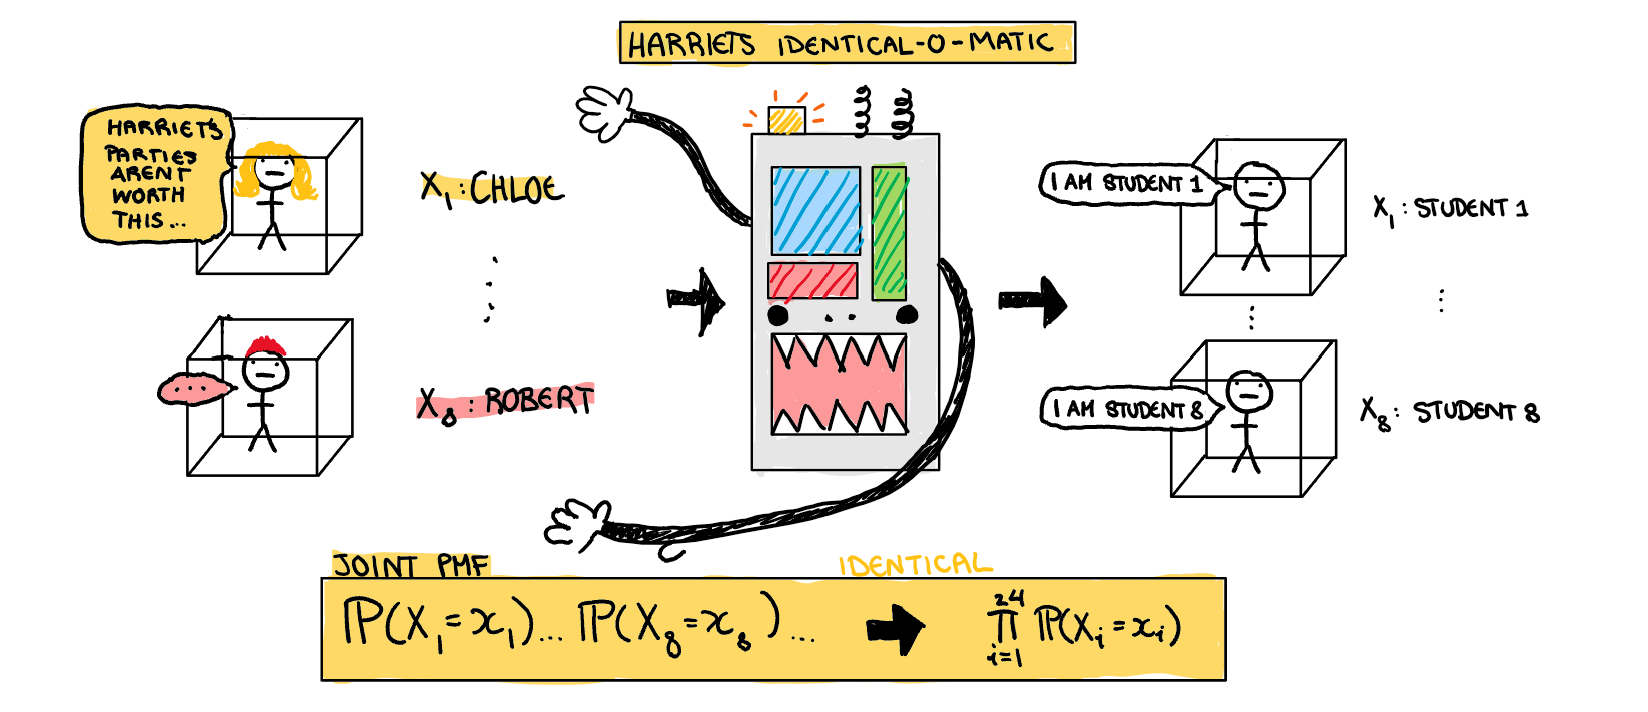 HARRIETS IDENTICAL-O-MATIC
HARRIETS
PARTIES
ARENT
WORTH
THIS...
X₁: CHLOE
...
X₈: ROBERT
I AM STUDENT 1
X₁: STUDENT 1
I AM STUDENT 8
X₈: STUDENT 8
JOINT PMF
IDENTICAL
ℙ(X₁=x₁)... ℙ(X₈=x₈)...
24
∏ ℙ(Xᵢ=xᵢ)
i=1